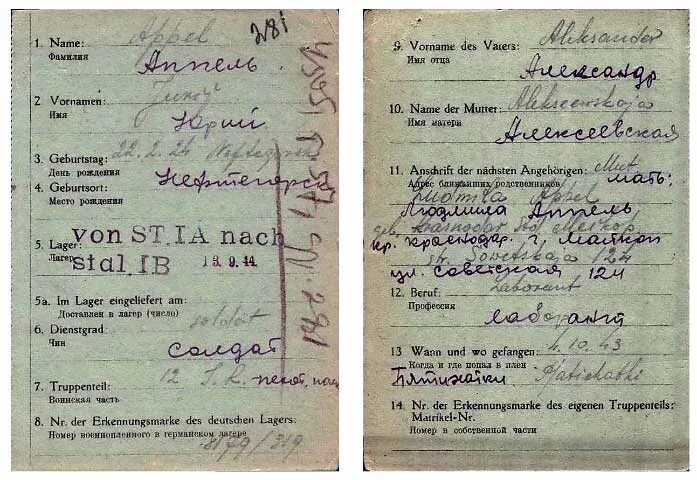 281
1. Name: Appel
Фамилия
Аппель
2 Vornamen: Jurij
Имя
Юрий
3. Geburtstag: 22. 2. 24 Neftegorsk
День рождения
4. Geburtsort: Нефтегорск
Место рождения
5. Lager: von ST. IA nach
Лагерь stal. IB 13. 9. 44
5a. Im Lager eingeliefert am:
Доставлен в лагерь (число)
6. Dienstgrad: soldat
Чин
солдат
7. Truppenteil: 12
Воинская часть
8. Nr. der Erkennungsmarke des deutschen Lagers:
Номер военнопленного в германском лагере
9. Vorname des Vaters: Aleksander
Имя отца
Александр
10. Name der Mutter: Alekseewskaja
Имя матери
Алексеевская
11. Anschrift der nächsten Angehörigen: Mut
Адрес ближайших родственников мать:
Ludmila Appel
Людмила Аппель
Krasnodar Meikop
кр. Краснодар. г. Майкоп
str. Sowetskaja 124
ул. Советская 124
12. Beruf: Laborant
Профессия
лаборант
13 Wann und wo gefangen: 4. 10. 43
Когда и где попал в плен
Пятихатки Pjatichatki
14. Nr. der Erkennungsmarke des eigenen Truppenteils:
Matrikel-Nr.
Номер в собственной части